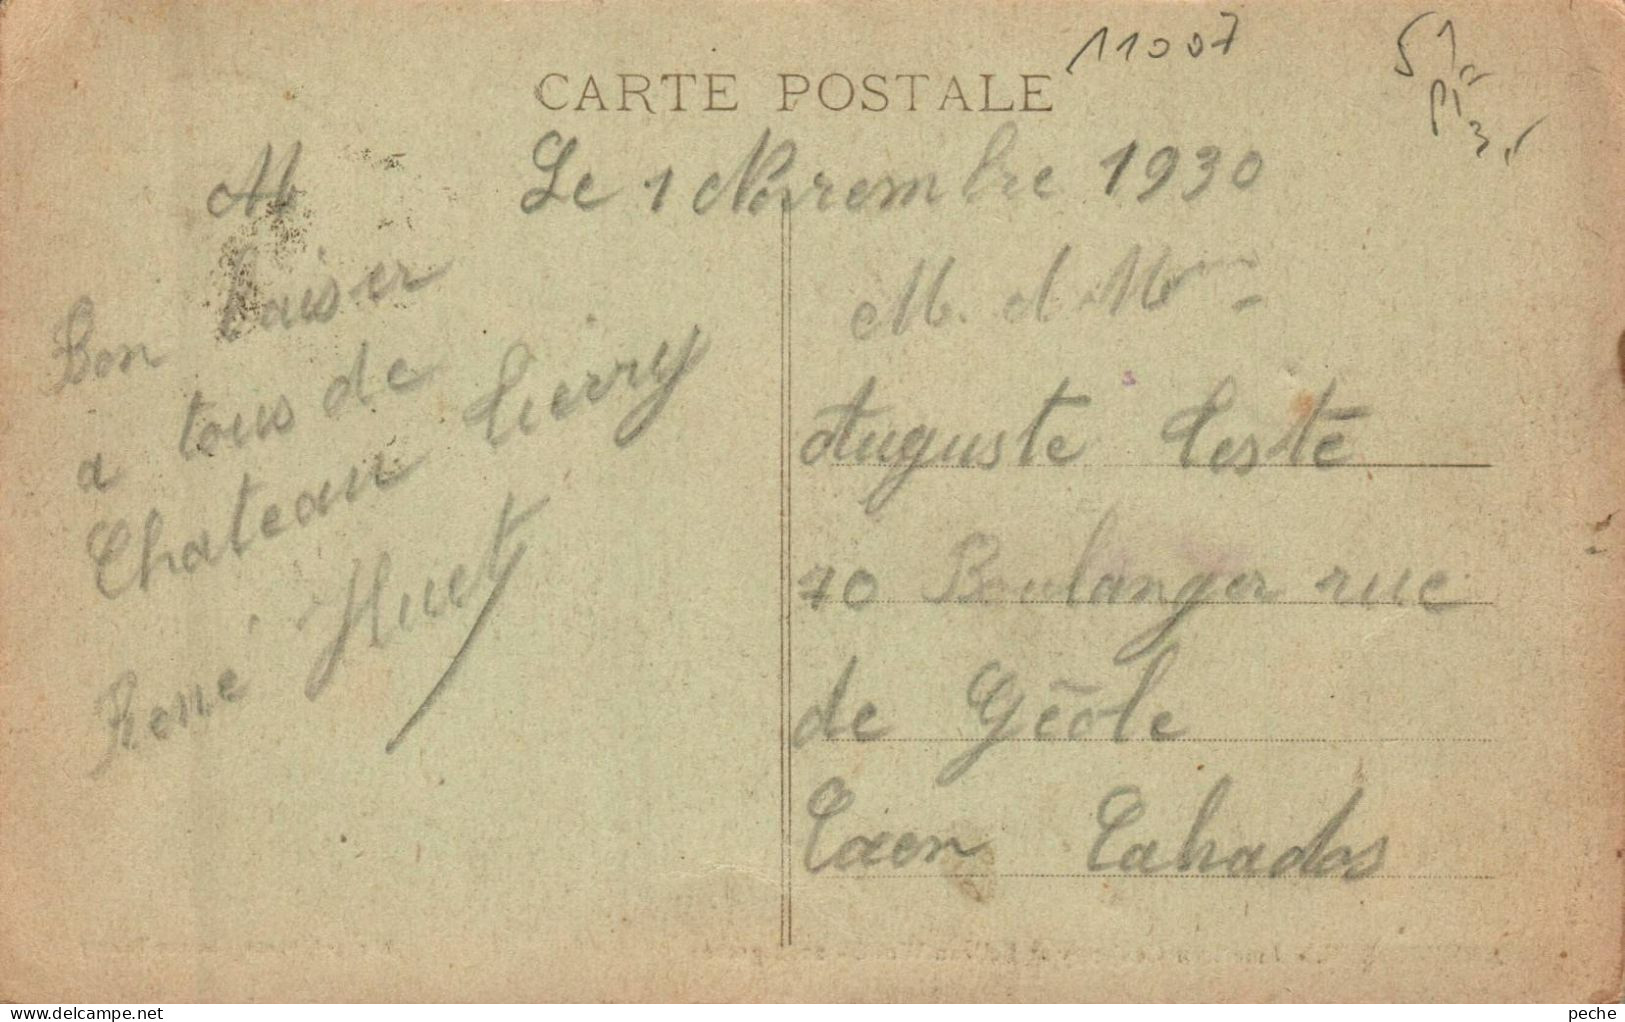 11007
51
CARTE POSTALE
Le 1 Novembre 1930
Bon baiser
a tous de
Chateau tierry
René Huet
M. et Mme
Auguste
70 Boulanger rue
de Géole
Caen Calvados
www.delcampe.net
peche